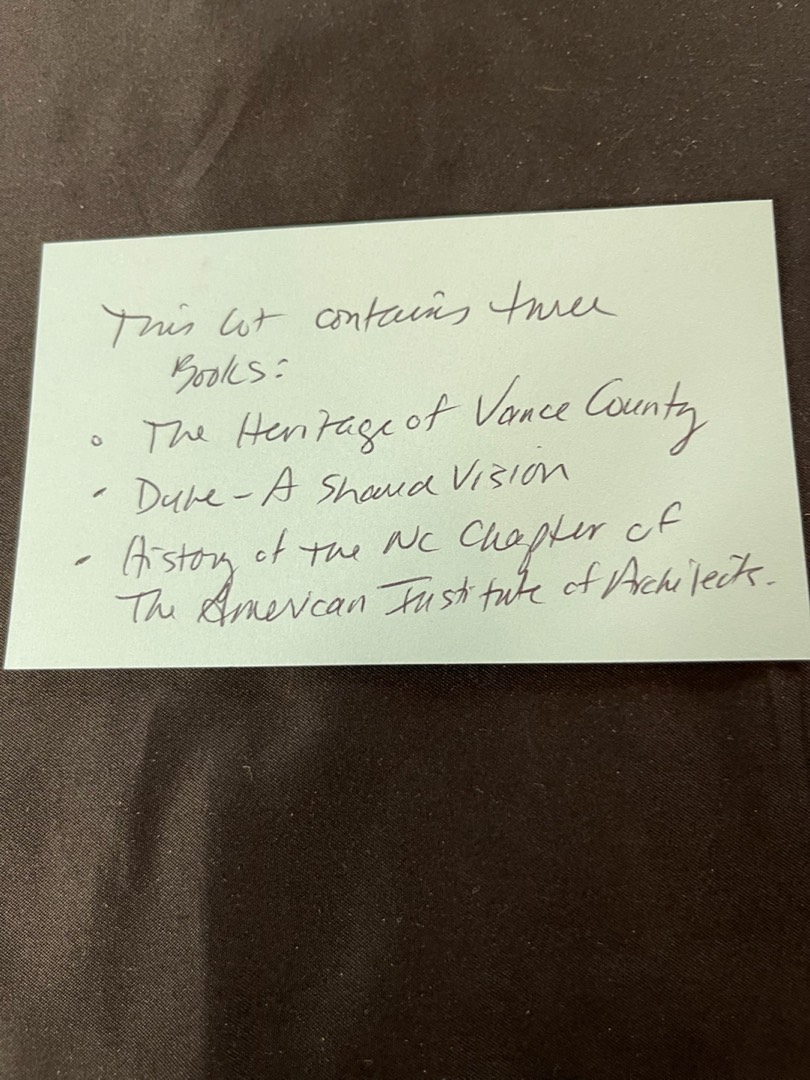 This lot contains three
Books:
The Heritage of Vance County
Duke - A Shared Vision
History of the NC Chapter of
The American Institute of Architects.